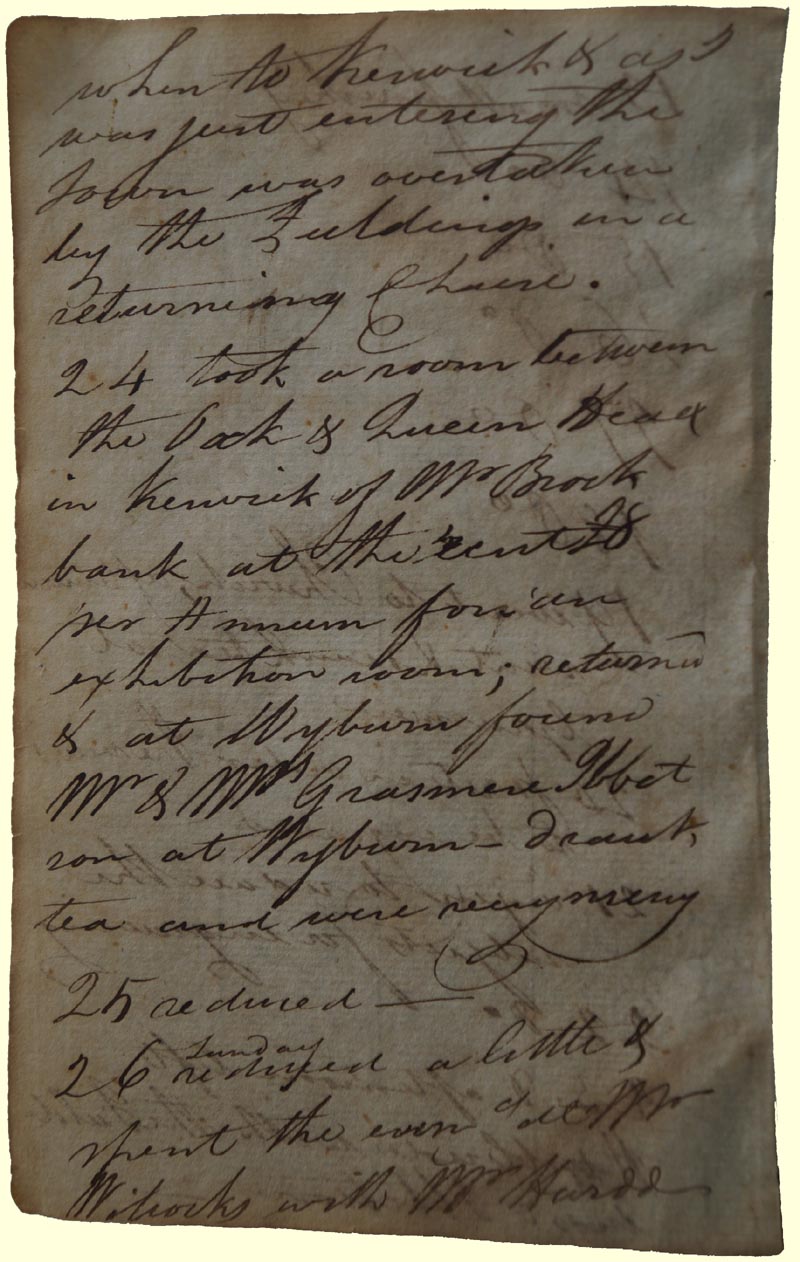 when to Keswick & as I
was just entering the
town was overtaken
by the Fieldings in a
returning Chaise.
24 took a room between
the Oak & Queen Head
in Keswick of Mr Brock
bank at the rent
per Annum for an
exhibition room; returnd
& at Wyburn found
Mr & Mrs Grasmere Ibbet
son at Wyburn - drank
tea and were
25 reduced —
Sunday
26 reduced a little &
spent the even at Mr
Wilcocks with Mr